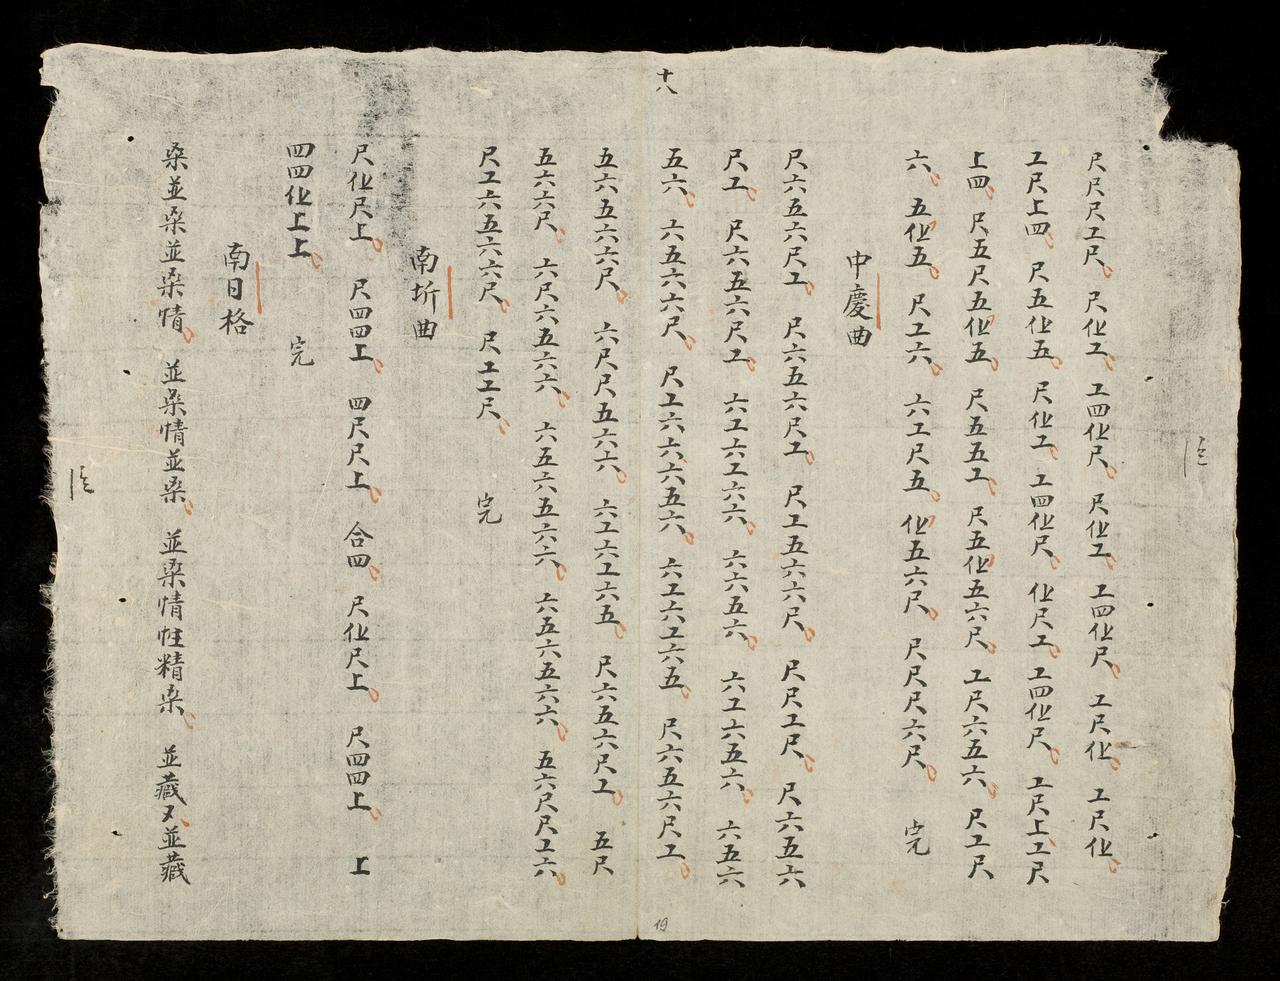 十八
尺尺尺工尺 尺仩工 工四仩尺 尺仩工 工四仩尺 工尺仩 工尺仩
工尺上四 尺五仩五 尺仩工 工四仩尺 仩尺工 工四仩尺 工尺上工尺
上四 尺五尺五仩五 尺五五工 尺五仩五六尺 工尺六五六 尺工尺
六 五仩五 尺工六 六工尺五 仩五六尺 尺尺尺六尺 完
中慶曲
尺六五六尺工 尺六五六尺工 尺工五六六尺 尺尺工尺 尺六五六
尺工 尺六五六尺工 六工六工六六 六六五六 六工六五六 六五六
五六 六五六六尺 尺工六六六五六 六工六工六五 尺六五六尺工
五六五六六尺 六尺尺五六六 六工六工六五 尺六五六尺工 五尺
五六六尺 六尺六五六六 六五六五六六 六五六五六六 五六尺尺工六
尺工六五六六尺 尺工工尺 完
南圻曲
尺仩尺上 尺四四上 四尺尺上 合四 尺仩尺上 尺四四上 上
四四仩上上 完
南日格
桒並桒並桒情 並桒情並桒 並桒情性精桒 並藏又並藏
19